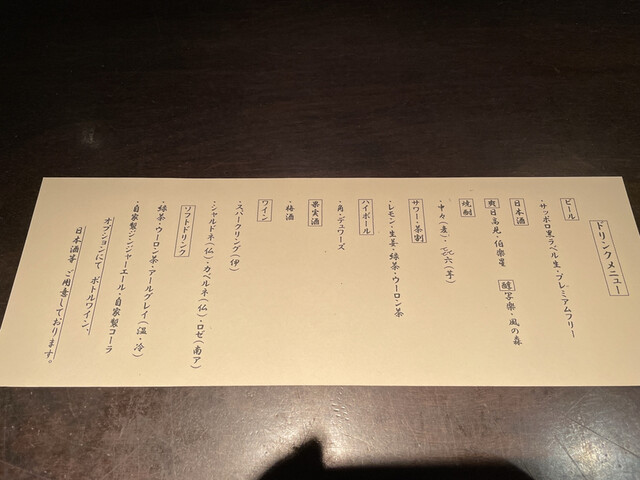 ドリンクメニュー
ビール
・サッポロ黒ラベル生・プレミアムフリー
日本酒
爽 日高見・伯楽星 醇 写楽・風の森
焼酎
・中々(麦)・㐂六(芋)
サワー・茶割
・レモン・生姜・緑茶・ウーロン茶
ハイボール
・角・デュワーズ
果実酒
・梅酒
ワイン
・スパークリング(伊)
・シャルドネ(仏)・カベルネ(仏)・ロゼ(南ア)
ソフトドリンク
・緑茶・ウーロン茶・アールグレイ(温・冷)
・自家製ジンジャーエール・自家製コーラ
オプションにて ボトルワイン、
日本酒等 ご用意しております。